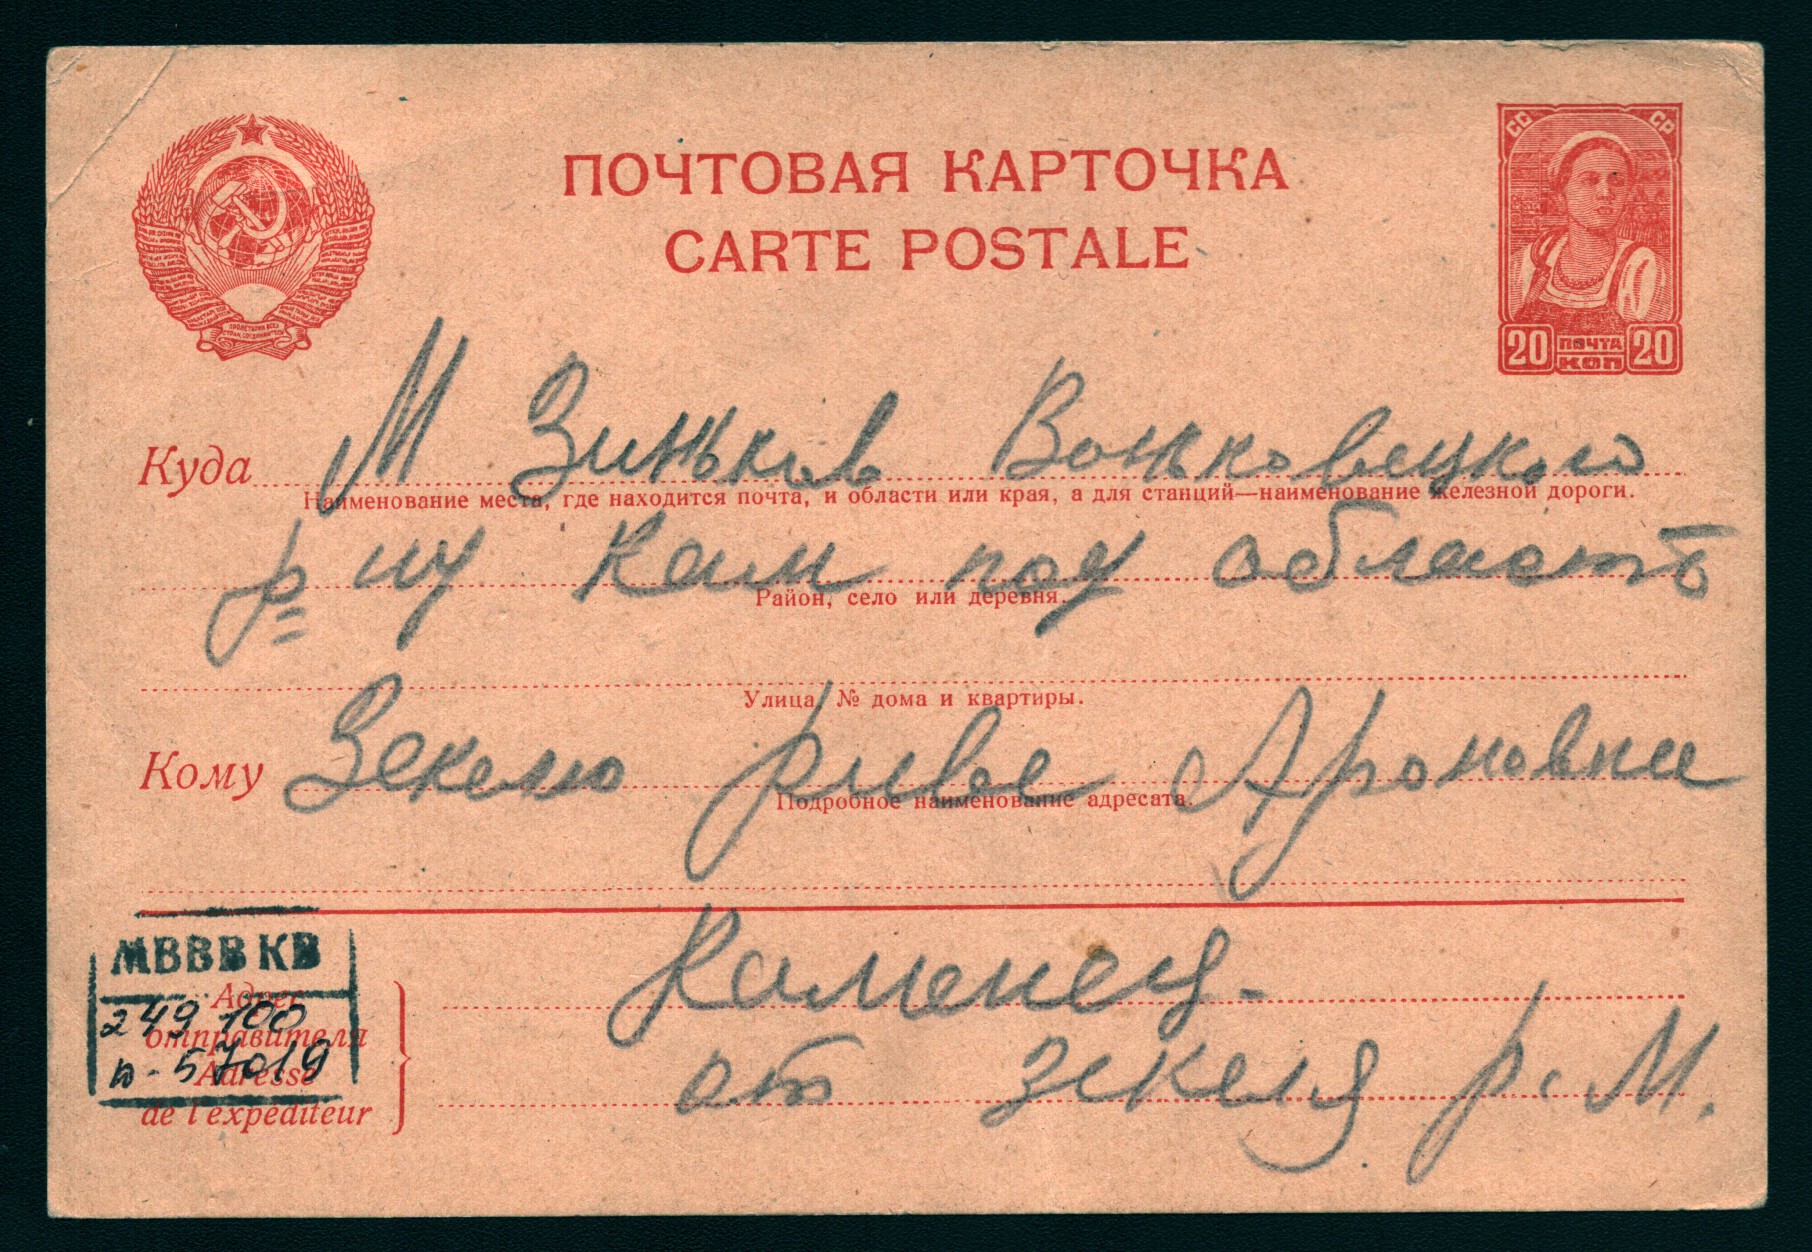 ПОЧТОВАЯ КАРТОЧКА
CARTE POSTALE
СС СР
20 ПОЧТА КОП 20
ПРОЛЕТАРИИ ВСЕХ СТРАН, СОЕДИНЯЙТЕСЬ
Куда М Зиньков Воньковецкого
Наименование места, где находится почта, и области или края, а для станций—наименование железной дороги.
р ну Кам под область
Район, село или деревня.
Улица, № дома и квартиры.
Кому Зекелю риве Ароновни
Подробное наименование адресата.
МВВВ КВ
249 100
п-57019
Адрес
отправителя
Adresse
de l'expéditeur
Каменец-
от Зекеля р. М.